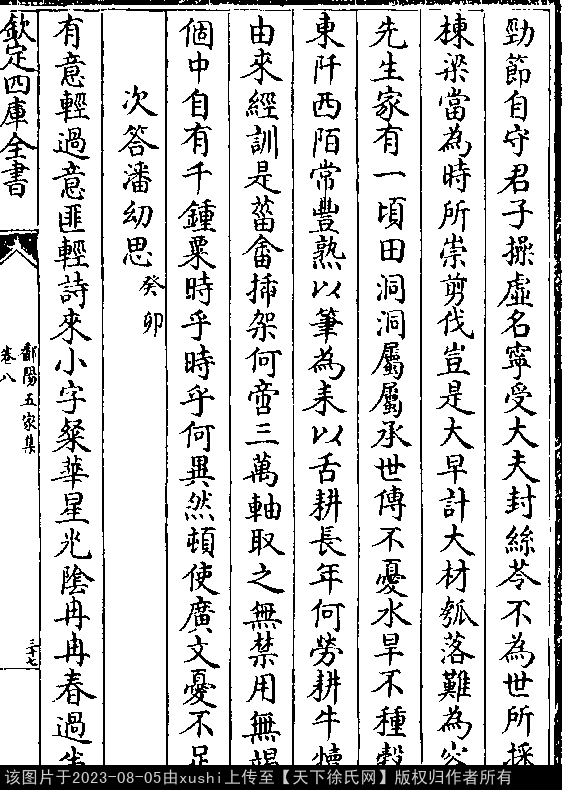 勁節自守君子操虛名寧受大夫封絲苓不為世所採
棟梁當為時所崇剪伐豈是大早計大材瓠落難為容
先生家有一頃田洞洞屬屬承世傳不憂水旱不種穀
東阡西陌常豐熟以筆為耒以舌耕長年何勞耕牛犢
由來經訓是菑畬揷架何啻三萬軸取之無禁用無竭
個中自有千鍾粟時乎時乎何異然頓使廣文憂不足
次答潘幼思癸卯
有意輕過意匪輕詩來小字粲華星光陰冉冉春過半
欽定四庫全書
鄱陽五家集
卷八
三十七
该图片于2023-08-05由xushi上传至【天下徐氏网】版权归作者所有